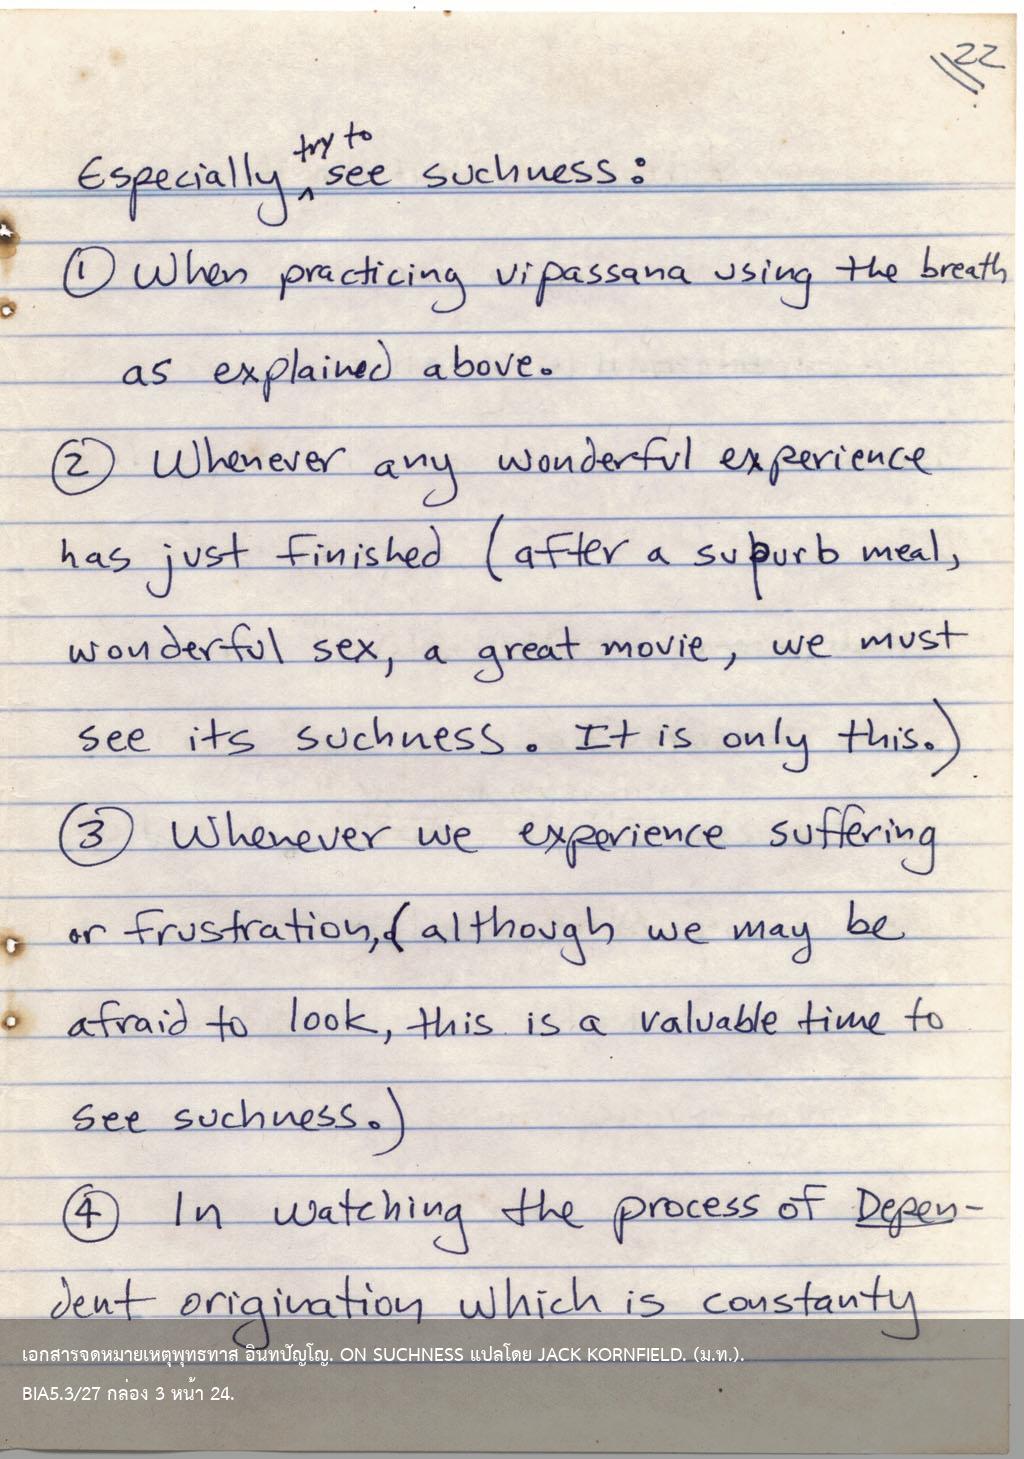 22
Especially try to see suchness:
① When practicing vipassana using the breath
as explained above.
② Whenever any wonderful experience
has just finished (after a supurb meal,
wonderful sex, a great movie, we must
see its suchness. It is only this.)
③ Whenever we experience suffering
or frustration, (although we may be
afraid to look, this is a valuable time to
see suchness.)
④ In watching the process of Depen-
dent origination which is constanty
เอกสารจดหมายเหตุพุทธทาส อินทปัญโญ. ON SUCHNESS แปลโดย JACK KORNFIELD. (ม.ท.).
BIA5.3/27 กล่อง 3 หน้า 24.